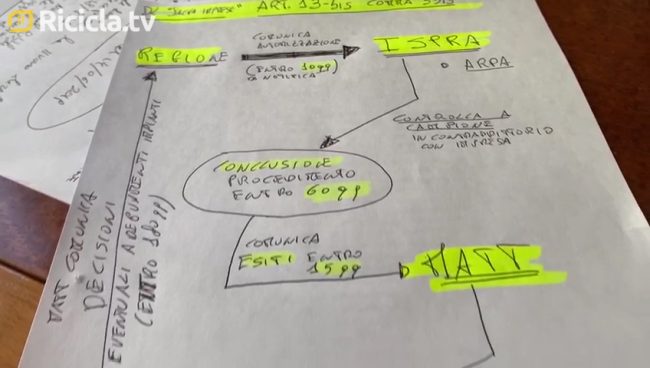 Ricicla.tv
DL "SALVA IMPRESE" ART. 13-bis COMMA 3bis
REGIONE
COMUNICA
AUTORIZZAZIONE
(ENTRO 10gg)
DI NOTIFICA
ISPRA
O ARPA
CONTROLLA A
CAMPIONE
IN CONTRADDITTORIO
CON IMPRESA
CONCLUSIONE
PROCEDIMENTO
ENTRO 60gg
COMUNICA
ESITI ENTRO
15gg
MATT
MATT COMUNICA
DECISIONI
EVENTUALI ADEGUAMENTI IMPIANTI
(ENTRO 120gg)